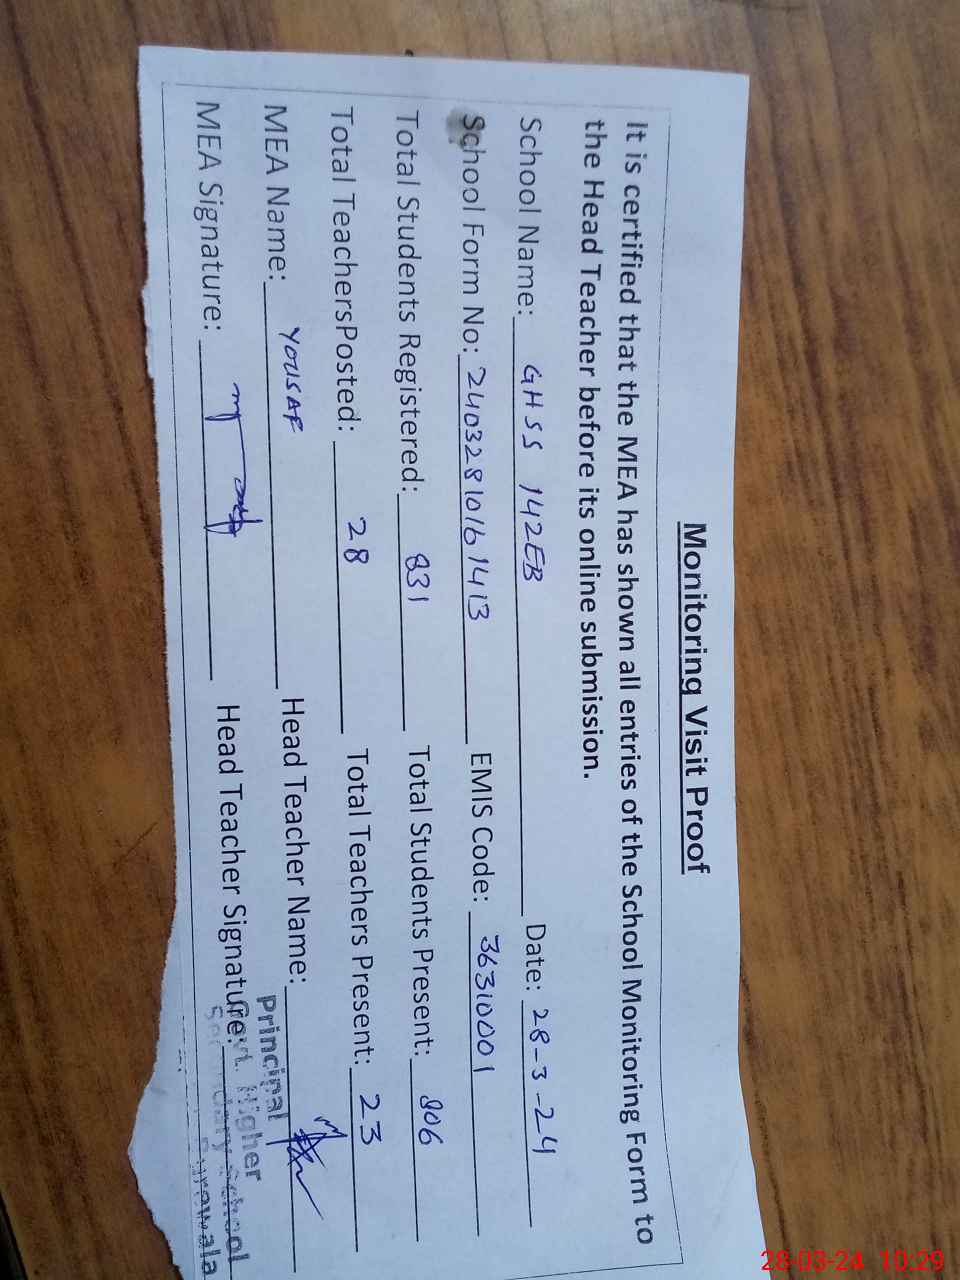 Monitoring Visit Proof
It is certified that the MEA has shown all entries of the School Monitoring Form to
the Head Teacher before its online submission.
School Name: GHSS 142EB Date: 28-3-24
School Form No: 24032810161413 EMIS Code: 36310001
Total Students Registered: 831 Total Students Present: 806
Total TeachersPosted: 28 Total Teachers Present: 23
MEA Name: YOUSAF Head Teacher Name:
MEA Signature: Head Teacher Signature:
Principal
Govt. Higher
Secondary School
28-03-24 10:29